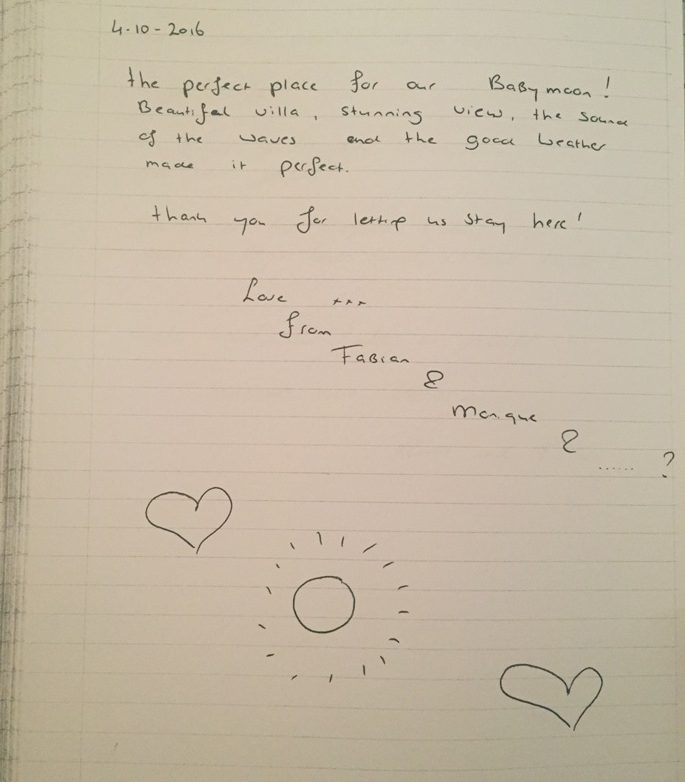 4-10-2016
the perfect place for our Babymoon!
Beautiful villa, stunning view, the sound
of the waves and the good weather
made it perfect.
thank you for letting us stay here!
Love ***
from
Fabian
&
Monique
&
...... ?